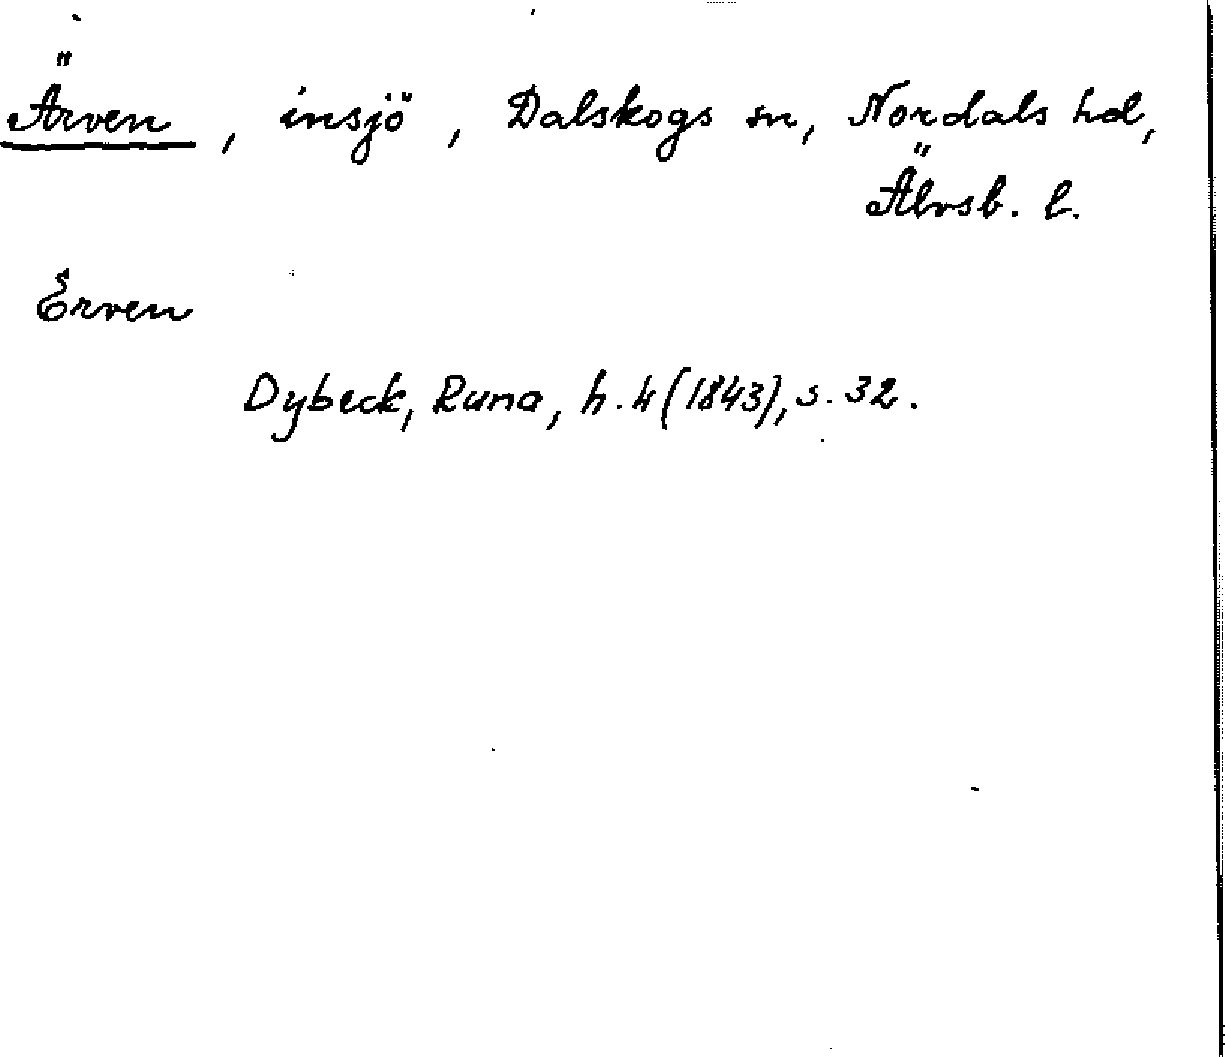 Ärven, insjö, Dalskogs sn, Nordals hd,
Älvsb. l.
Erven
Dybeck, Runa, h. 4 (1843), s. 32.